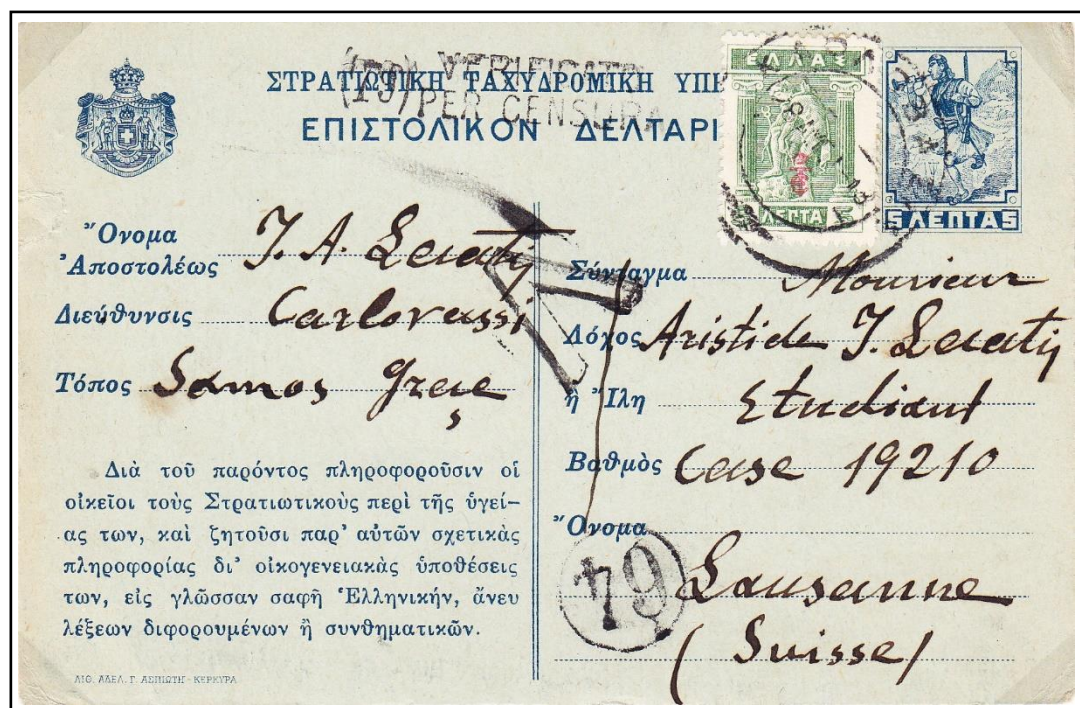 ΣΤΡΑΤΙΩΤΙΚΗ ΤΑΧΥΔΡΟΜΙΚΗ ΥΠΗ
(15) VERIFICATO
PER CENSURA
ΕΠΙΣΤΟΛΙΚΟΝ ΔΕΛΤΑΡΙ
ΕΛΛΑΣ
ΛΕΠΤΑ 5
5 ΛΕΠΤΑ 5
Ὄνομα
Ἀποστολέως J. A.
Διεύθυνσις Carlovassi
Τόπος Samos Grèce
Διὰ τοῦ παρόντος πληροφοροῦσιν οἱ
οἰκεῖοι τοὺς Στρατιωτικοὺς περὶ τῆς ὑγεί-
ας των, καὶ ζητοῦσι παρ' αὐτῶν σχετικὰς
πληροφορίας δι' οἰκογενειακὰς ὑποθέσεις
των, εἰς γλῶσσαν σαφῆ Ἑλληνικήν, ἄνευ
λέξεων διφορουμένων ἢ συνθηματικῶν.
ΛΙΘ. ΑΔΕΛ. Γ. ΑΣΠΙΩΤΗ - ΚΕΡΚΥΡΑ
Σύνταγμα Monsieur
Λόχος Aristide J.
ἢ Ἴλη Etudiant
Βαθμὸς Case 19210
Ὄνομα
Lausanne
(Suisse)
64